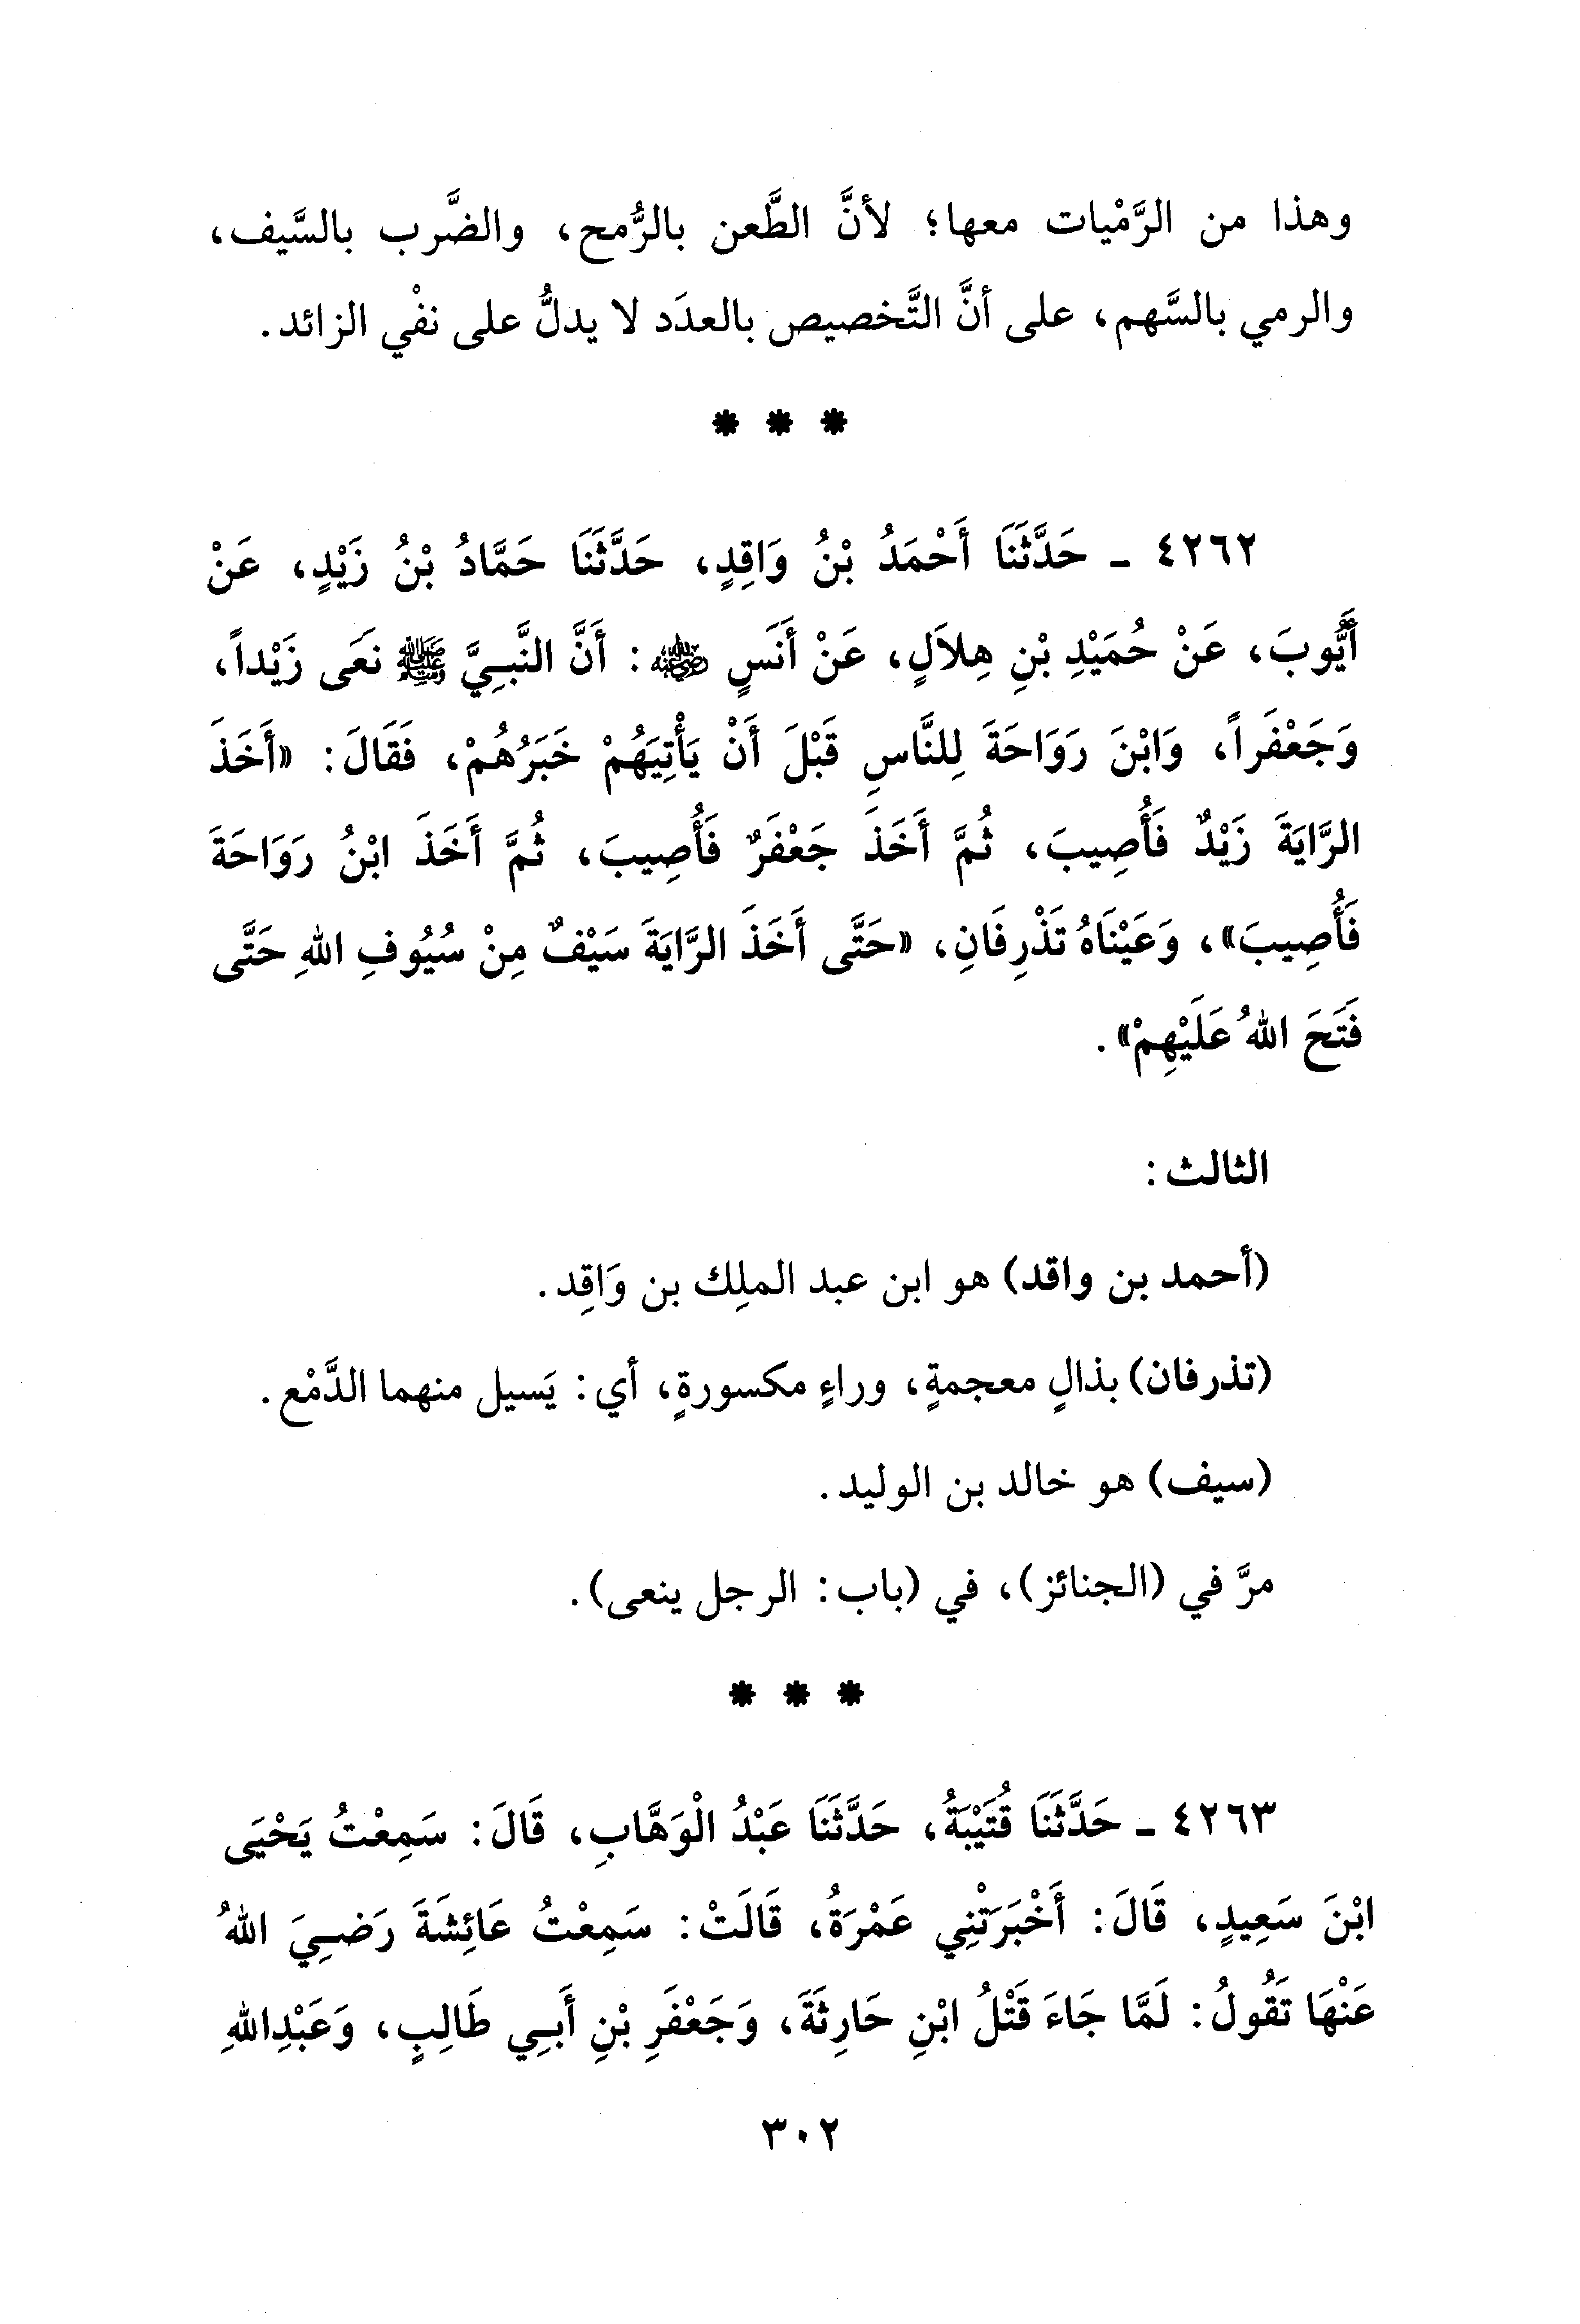 وهذا من الرَّمْيات معها؛ لأنَّ الطَّعن بالرُّمح، والضَّرب بالسَّيف،
والرمي بالسَّهم، على أنَّ التَّخصيص بالعدَد لا يدلُّ على نفْي الزائد.
* * *
٤٢٦٢ ـ حَدَّثَنَا أَحْمَدُ بْنُ وَاقِدٍ، حَدَّثَنَا حَمَّادُ بْنُ زَيْدٍ، عَنْ
أَيُّوبَ، عَنْ حُمَيْدِ بْنِ هِلاَلٍ، عَنْ أَنَسٍ رضي الله عنه: أَنَّ النَّبِيَّ ﷺ نَعَى زَيْداً،
وَجَعْفَراً، وَابْنَ رَوَاحَةَ لِلنَّاسِ قَبْلَ أَنْ يَأْتِيَهُمْ خَبَرُهُمْ، فَقَالَ: «أَخَذَ
الرَّايَةَ زَيْدٌ فَأُصِيبَ، ثُمَّ أَخَذَ جَعْفَرٌ فَأُصِيبَ، ثُمَّ أَخَذَ ابْنُ رَوَاحَةَ
فَأُصِيبَ»، وَعَيْنَاهُ تَذْرِفَانِ، «حَتَّى أَخَذَ الرَّايَةَ سَيْفٌ مِنْ سُيُوفِ اللهِ حَتَّى
فَتَحَ اللهُ عَلَيْهِمْ».
الثالث:
(أحمد بن واقد) هو ابن عبد الملِك بن وَاقِد.
(تذرفان) بذالٍ معجمةٍ، وراءٍ مكسورةٍ، أي: يَسيل منهما الدَّمْع.
(سيف) هو خالد بن الوليد.
مرَّ في (الجنائز)، في (باب: الرجل ينعى).
* * *
٤٢٦٣ ـ حَدَّثَنَا قُتَيْبَةُ، حَدَّثَنَا عَبْدُ الْوَهَّابِ، قَالَ: سَمِعْتُ يَحْيَى
ابْنَ سَعِيدٍ، قَالَ: أَخْبَرَتْنِي عَمْرَةُ، قَالَتْ: سَمِعْتُ عَائِشَةَ رَضِيَ اللهُ
عَنْهَا تَقُولُ: لَمَّا جَاءَ قَتْلُ ابْنِ حَارِثَةَ، وَجَعْفَرِ بْنِ أَبِي طَالِبٍ، وَعَبْدِاللهِ
٣٠٢